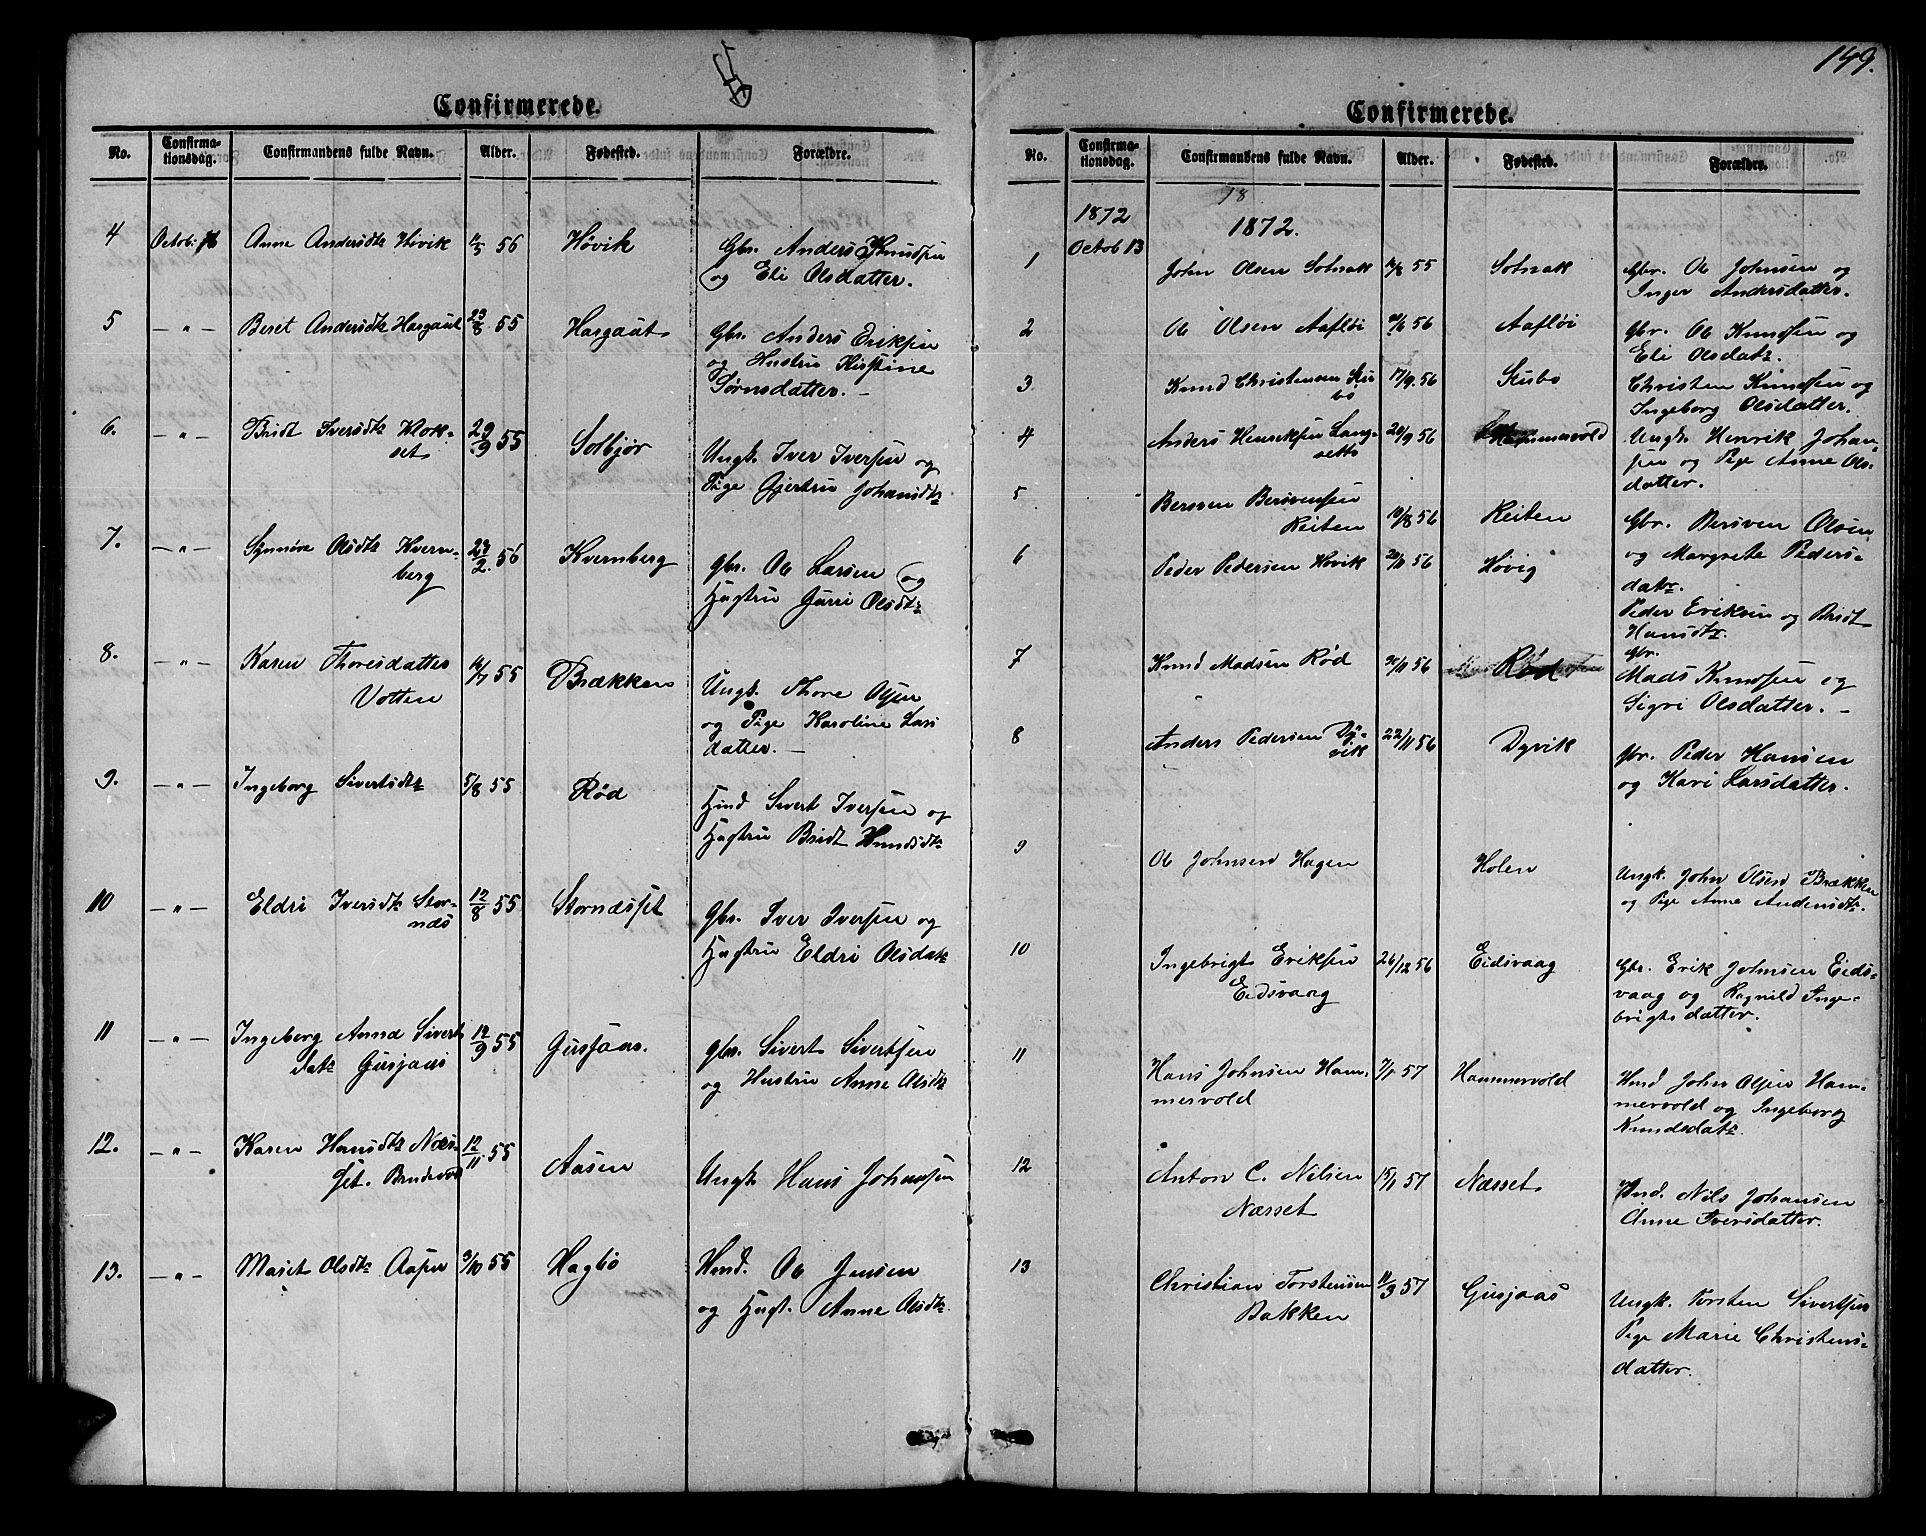 Confirmerede.
No. Confirma-tionsdag. Confirmandens fulde Navn. Alder. Fødested. Forældre.
4 Octob: Anne Andersdtr Høvik 56 Høvik Gbr. Anders Knudsen
og Eli Olsdatter.
5 — „ — Beret Andersdtr Hargaut 23/8 55 Hargaut Gbr. Anders Eriksen
og Hustru Kirstine
Sørnsdatter. —
6. — „ — Bridt Iversdtr Klok-
set 29/9 55 Solbjør Ungk. Iver Iversen og
Pige Gjertru Johansdtr
7. — „ — Synnøve Olsdtr Kvern-
berg 56 Kvernberg Gbr. Ole Larsen og
Hustru Gurri Olsdtr
8. — „ — Karen Thoresdatter
Votten 55 Brækken Ungk. Thore Olsen
og Pige Karoline Lars
datter. —
9. — „ — Ingeborg Sivertsdtr 5/8 55 Rød Hmd Sivert Iversen og
Hustru Bridt Knudsdtr
10 — „ — Eldri Iversdtr Stor-
næs 12/8 55 Stornæsset Gbr. Iver Iversen og
Hustru Eldri Olsdatr
11 — „ — Ingeborg Anna Sivert
datr Gusjaas 12/9 55 Gusjaas. Gbr. Sivert Sivertsen
og Hustru Anne Olsdtr
12. — „ — Karen Hansdtr Næs-
set. 12/11 55 Aasen Ungk Hans Johansen
13. — „ — Maret Olsdtr Aasen 3/10 55 Hagbø Hmd. Ole Jensen
og Hust. Anne Olsdtr.
149.
Confirmerede.
No. Confirma-tionsdag. Confirmandens fulde Navn. Alder. Fødested. Forældre.
18
1872 1872.
1 Octob 13 John Olsen Solnak 55 Solnak Gbr. Ole Johnsen og
Inger Andersdatter.
2 Ole Olsen Aafløi 56 Aafløi Gbr. Ole Knudsen og
Eli Olsdatr.
3 Knud Christensen Stu
bø 17/9 56 Stubø Christen Knudsen og
Ingeborg Olsdatter.
4 Anders Henriksen Lang-
sette 56 Hammervold Ungk. Henrik Johan-
sen og Pige Anne Ols-
datter.
5 Bersven Bersvensen
Reiten 56 Reiten Gbr. Bersven Olsen
og Margrete Peders-
datr.
6 Peder Pedersen Høvik 56 Høvig Peder Eriksen og Bridt
Hansdtr.
7 Knud Madsen Rød 56 Rød Gbr.
Mads Knudsen og
Sigri Olsdatter. —
8 Anders Pedersen Dy-
vik 22/11 56 Dyvik Gbr. Peder Hansen
og Kari Larsdatter.
9 Ole Johnsen Hagen Holen Ungk. John Olsen Brækken
og Pige Anne Andersdtr.
10 Ingebrigt Eriksen
Eidsvaag 26/12 56 Eidsvaag Gbr. Erik Johnsen Eids-
vaag og Ragnild Inge-
brigtsdatter.
11 Hans Johnsen Ham-
mervold 7/1 57 Hammervold Hmd John Olsen Ham-
mervold og Ingeborg
Knudsdatr.
12 Anton C. Nilsen
Næsset 15/1 57 Næsset Hmd. Nils Johansen
Anne Iversdatter.
13 Christian Torstensen
Bakken 11/3 57 Gusjaas Ungk. Torsten Sivertsen
Pige Marie Christens-
datter.